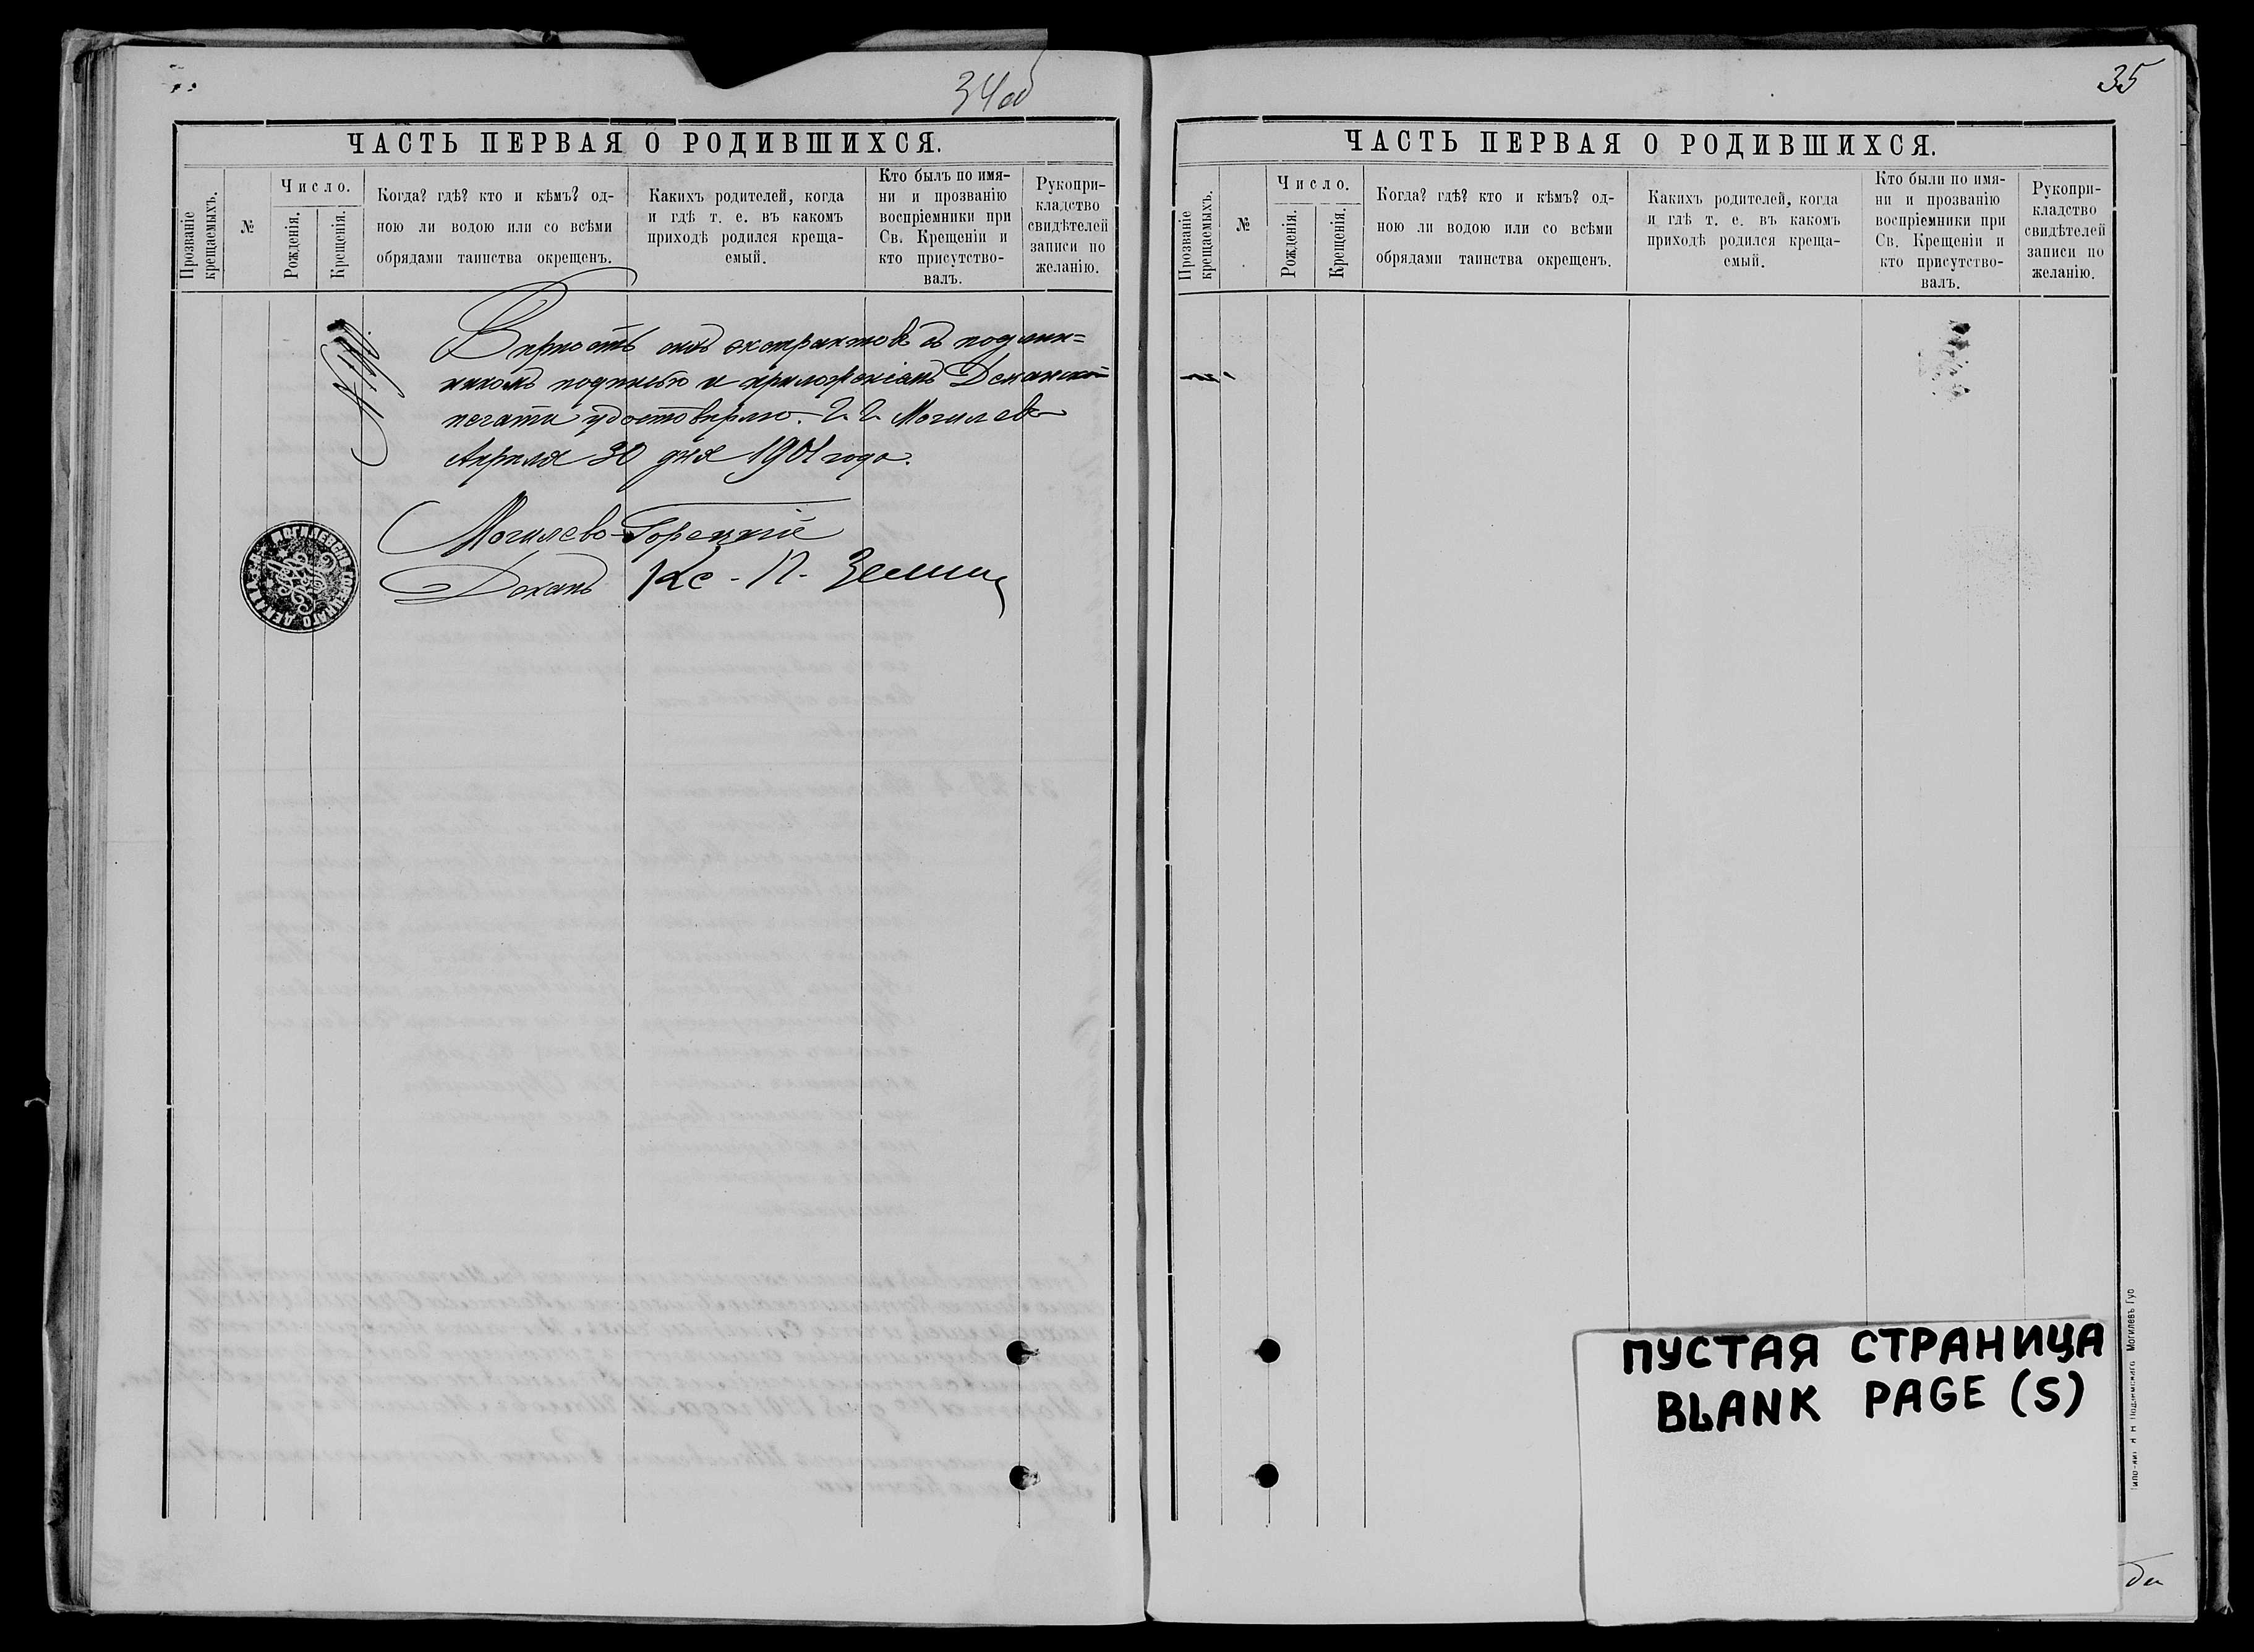 34об
ЧАСТЬ ПЕРВАЯ О РОДИВШИХСЯ.
Прозваніе крещаемыхъ.
№
Число.
Рожденія.
Крещенія.
Когда? гдѣ? кто и кѣмъ? од-
ною ли водою или со всѣми
обрядами таинства окрещенъ.
Какихъ родителей, когда
и гдѣ т. е. въ какомъ
приходѣ родился креща-
емый.
Кто былъ по имя-
ни и прозванію
воспріемники при
Св. Крещеніи и
кто присутство-
валъ.
Рукопри-
кладство
свидѣтелей
записи по
желанію.
Вѣрность сихъ экстрактовъ съ подлин-
никомъ подписью и приложеніемъ Деканской
печати удостовѣряю. Г. Г. Могилевъ
Апрѣля 30 дня 1901 года.
Могилево-Горецкій
Деканъ Кс. П.
35
ЧАСТЬ ПЕРВАЯ О РОДИВШИХСЯ.
Прозваніе крещаемыхъ.
№
Число.
Рожденія.
Крещенія.
Когда? гдѣ? кто и кѣмъ? од-
ною ли водою или со всѣми
обрядами таинства окрещенъ.
Какихъ родителей, когда
и гдѣ т. е. въ какомъ
приходѣ родился креща-
емый.
Кто были по имя-
ни и прозванію
воспріемники при
Св. Крещеніи и
кто присутство-
валъ.
Рукопри-
кладство
свидѣтелей
записи по
желанію.
ПУСТАЯ СТРАНИЦА
BLANK PAGE (S)
Могилевъ Губ